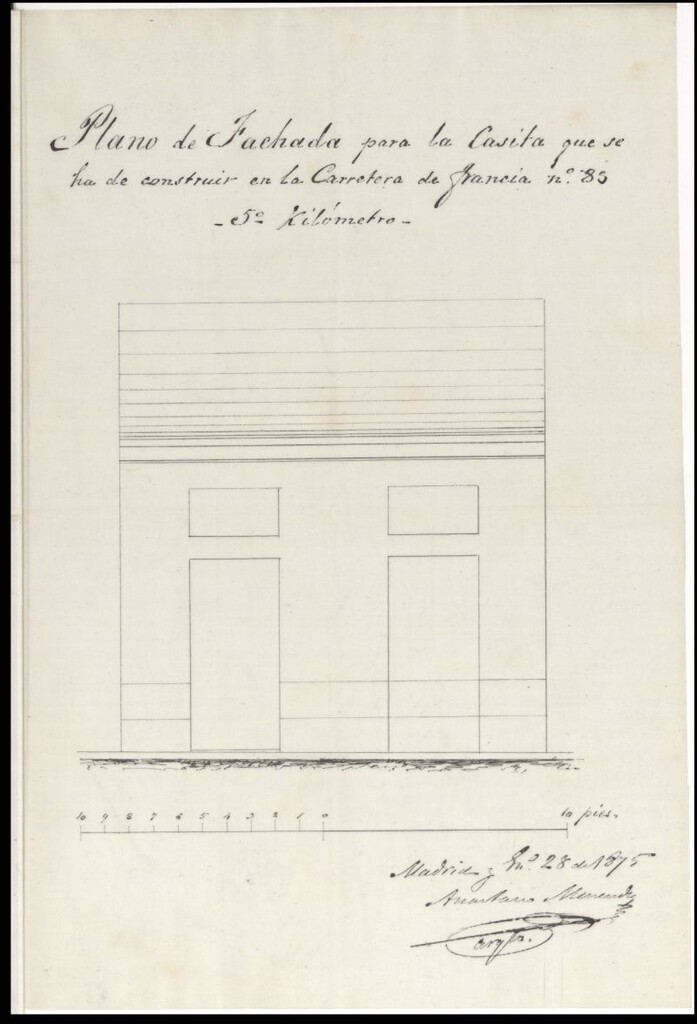 Plano de Fachada para la Casita que se
ha de construir en la Carretera de Francia nº. 83
- 5º Kilómetro -
10 9 8 7 6 5 4 3 2 1 0 10 pies.
Madrid y En.º 28 de 1875